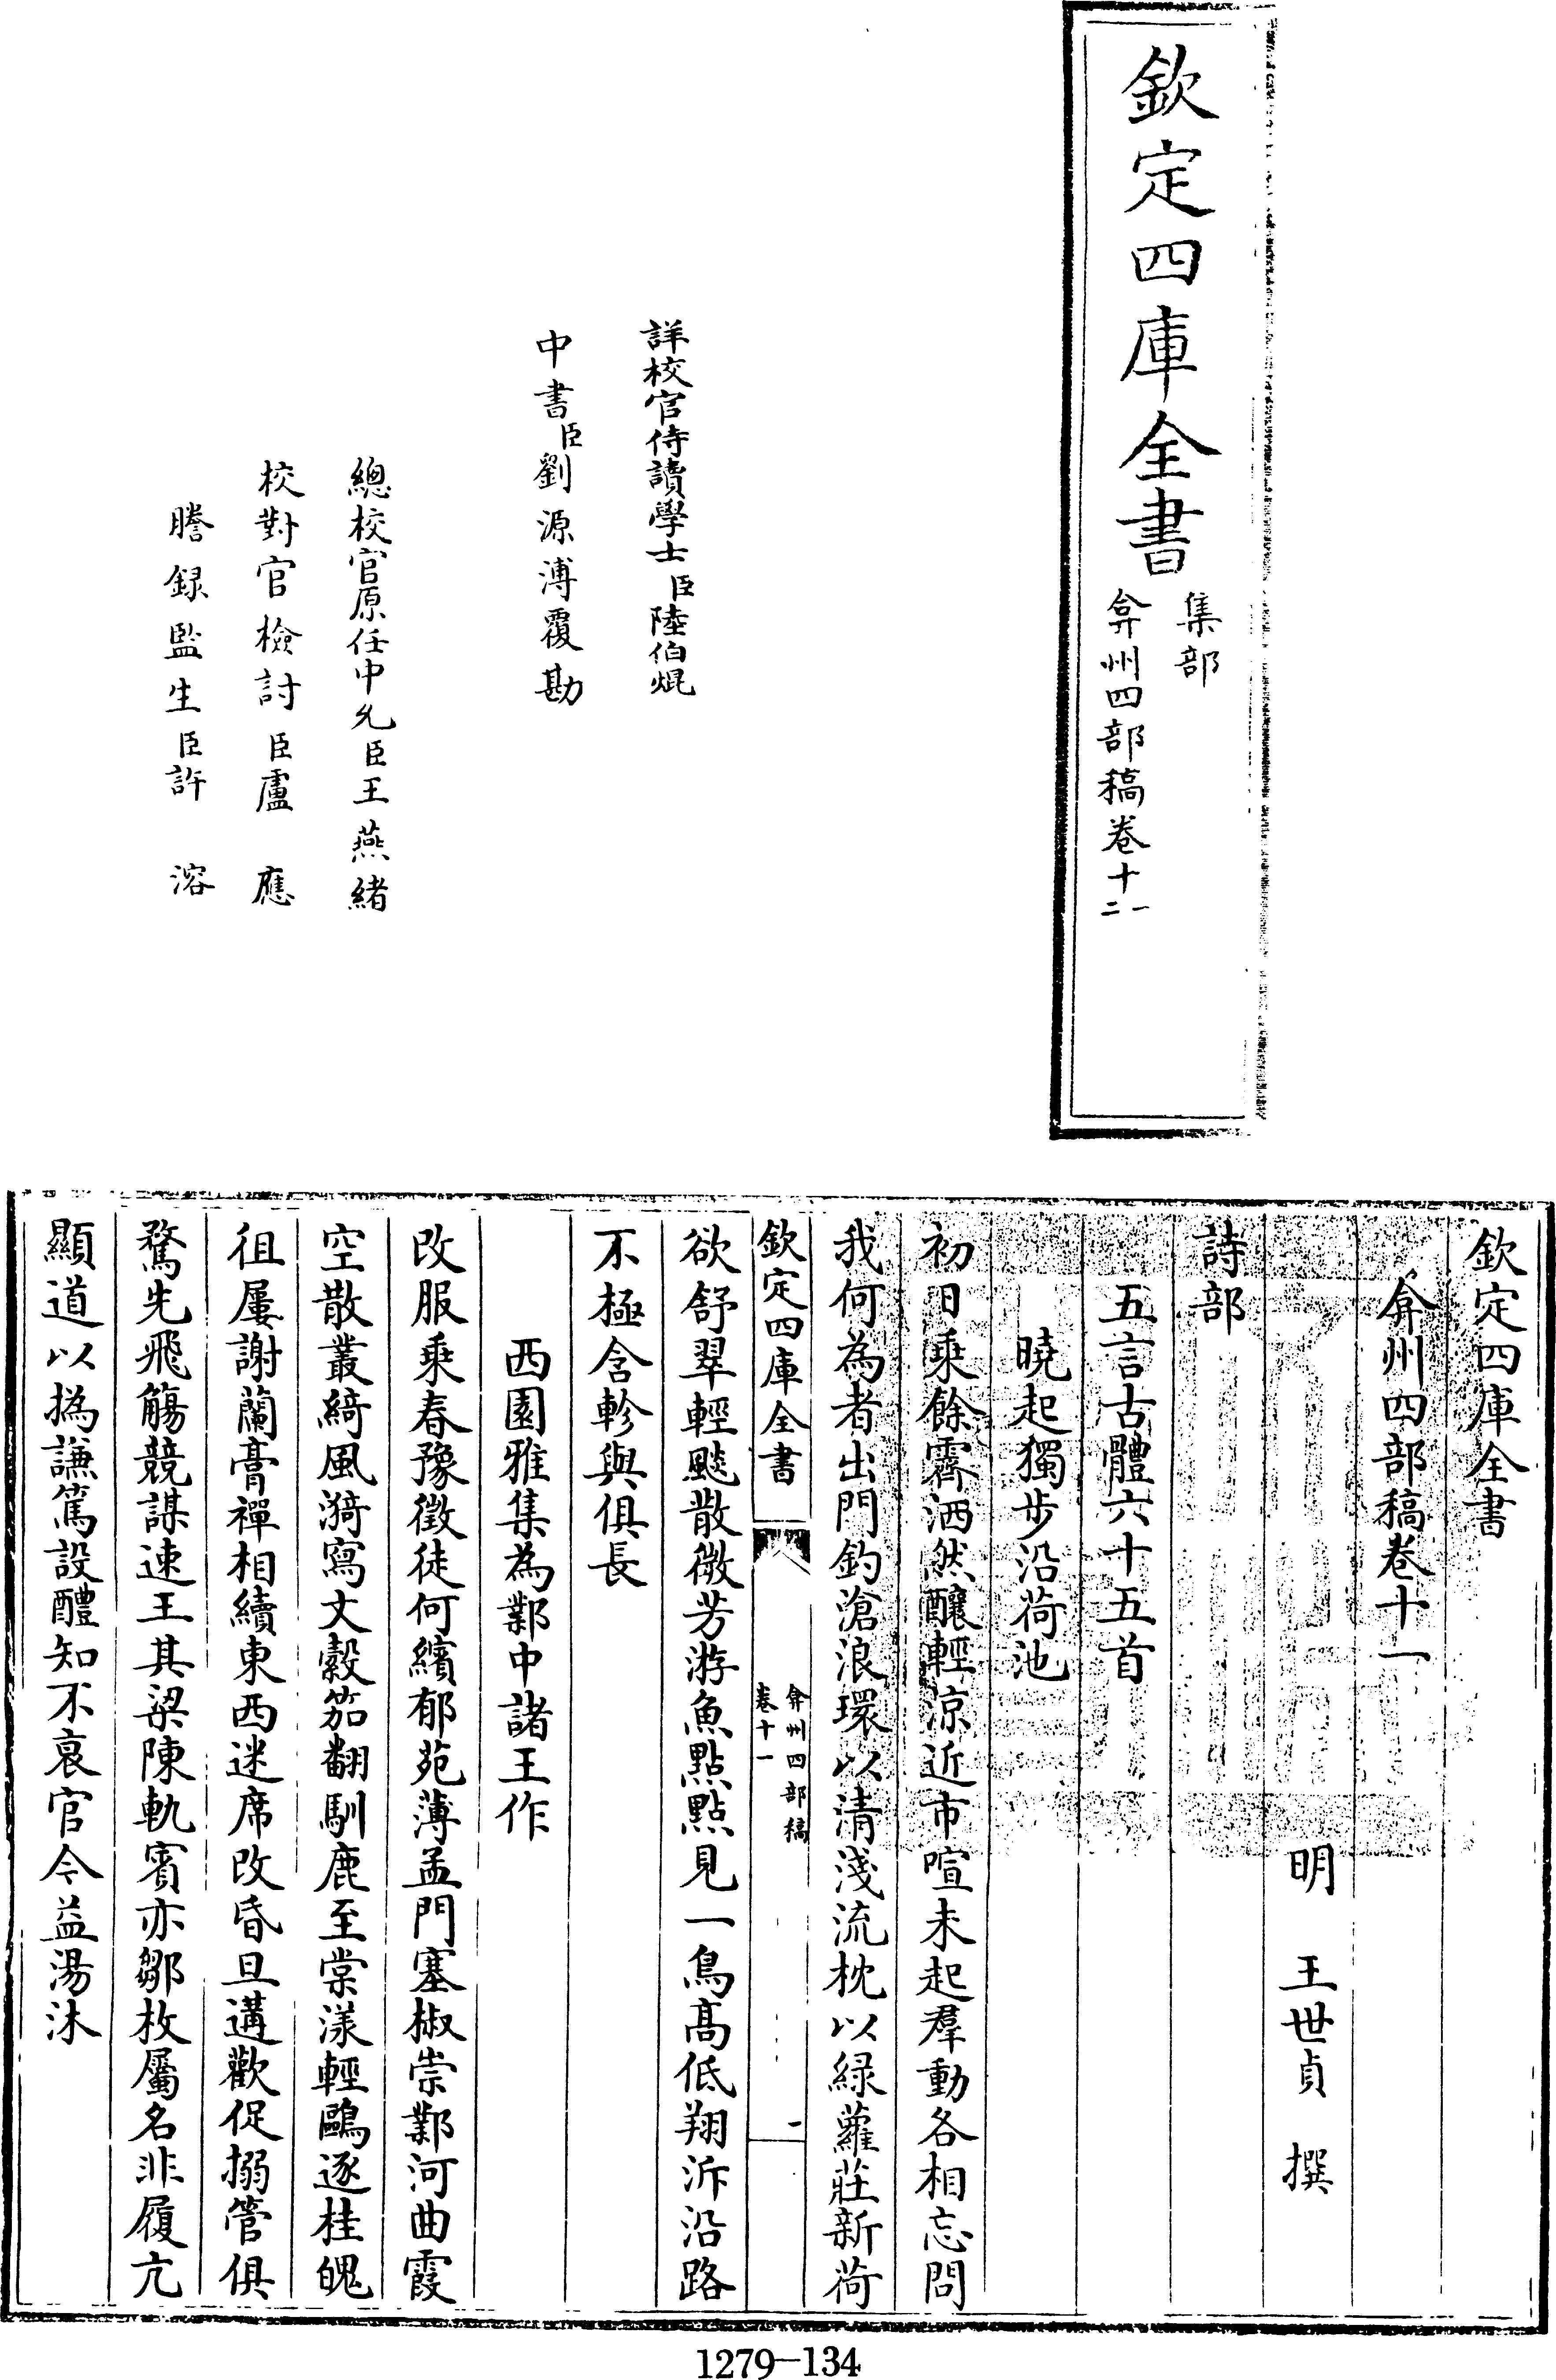 欽定四庫全書
集部
弇州四部稿卷十一
二
詳校官侍讀學士臣陸伯焜
中書臣劉源溥覆勘
總校官原任中允臣王燕緒
校對官檢討臣盧應
謄録監生臣許溶
欽定四庫全書
弇州四部稿卷十一
明王世貞撰
詩部
五言古體六十五首
曉起獨步沿荷池
初日乗餘霽洒然釀輕涼近市喧未起羣動各相忘問
我何為者出門釣滄浪環以清淺流枕以緑蘿莊新荷
欽定四庫全書
弇州四部稿
卷十一
一
欲舒翠輕颸散微芳游魚點點見一鳥髙低翔泝沿路
不極含軫與俱長
西園雅集為鄴中諸王作
改服乗春豫徴徒何繽郁苑薄孟門塞椒崇鄴河曲霞
空散叢綺風漪寫文縠笳翻馴鹿至棠漾輕鷗逐桂魄
徂屢謝蘭膏禪相續東西迷席改昏旦遘歡促搦管俱
騖先飛觴競謀速王其梁陳軌賓亦鄒枚屬名非履亢
顯道以撝謙篤設醴知不哀官令益湯沐
1279—134